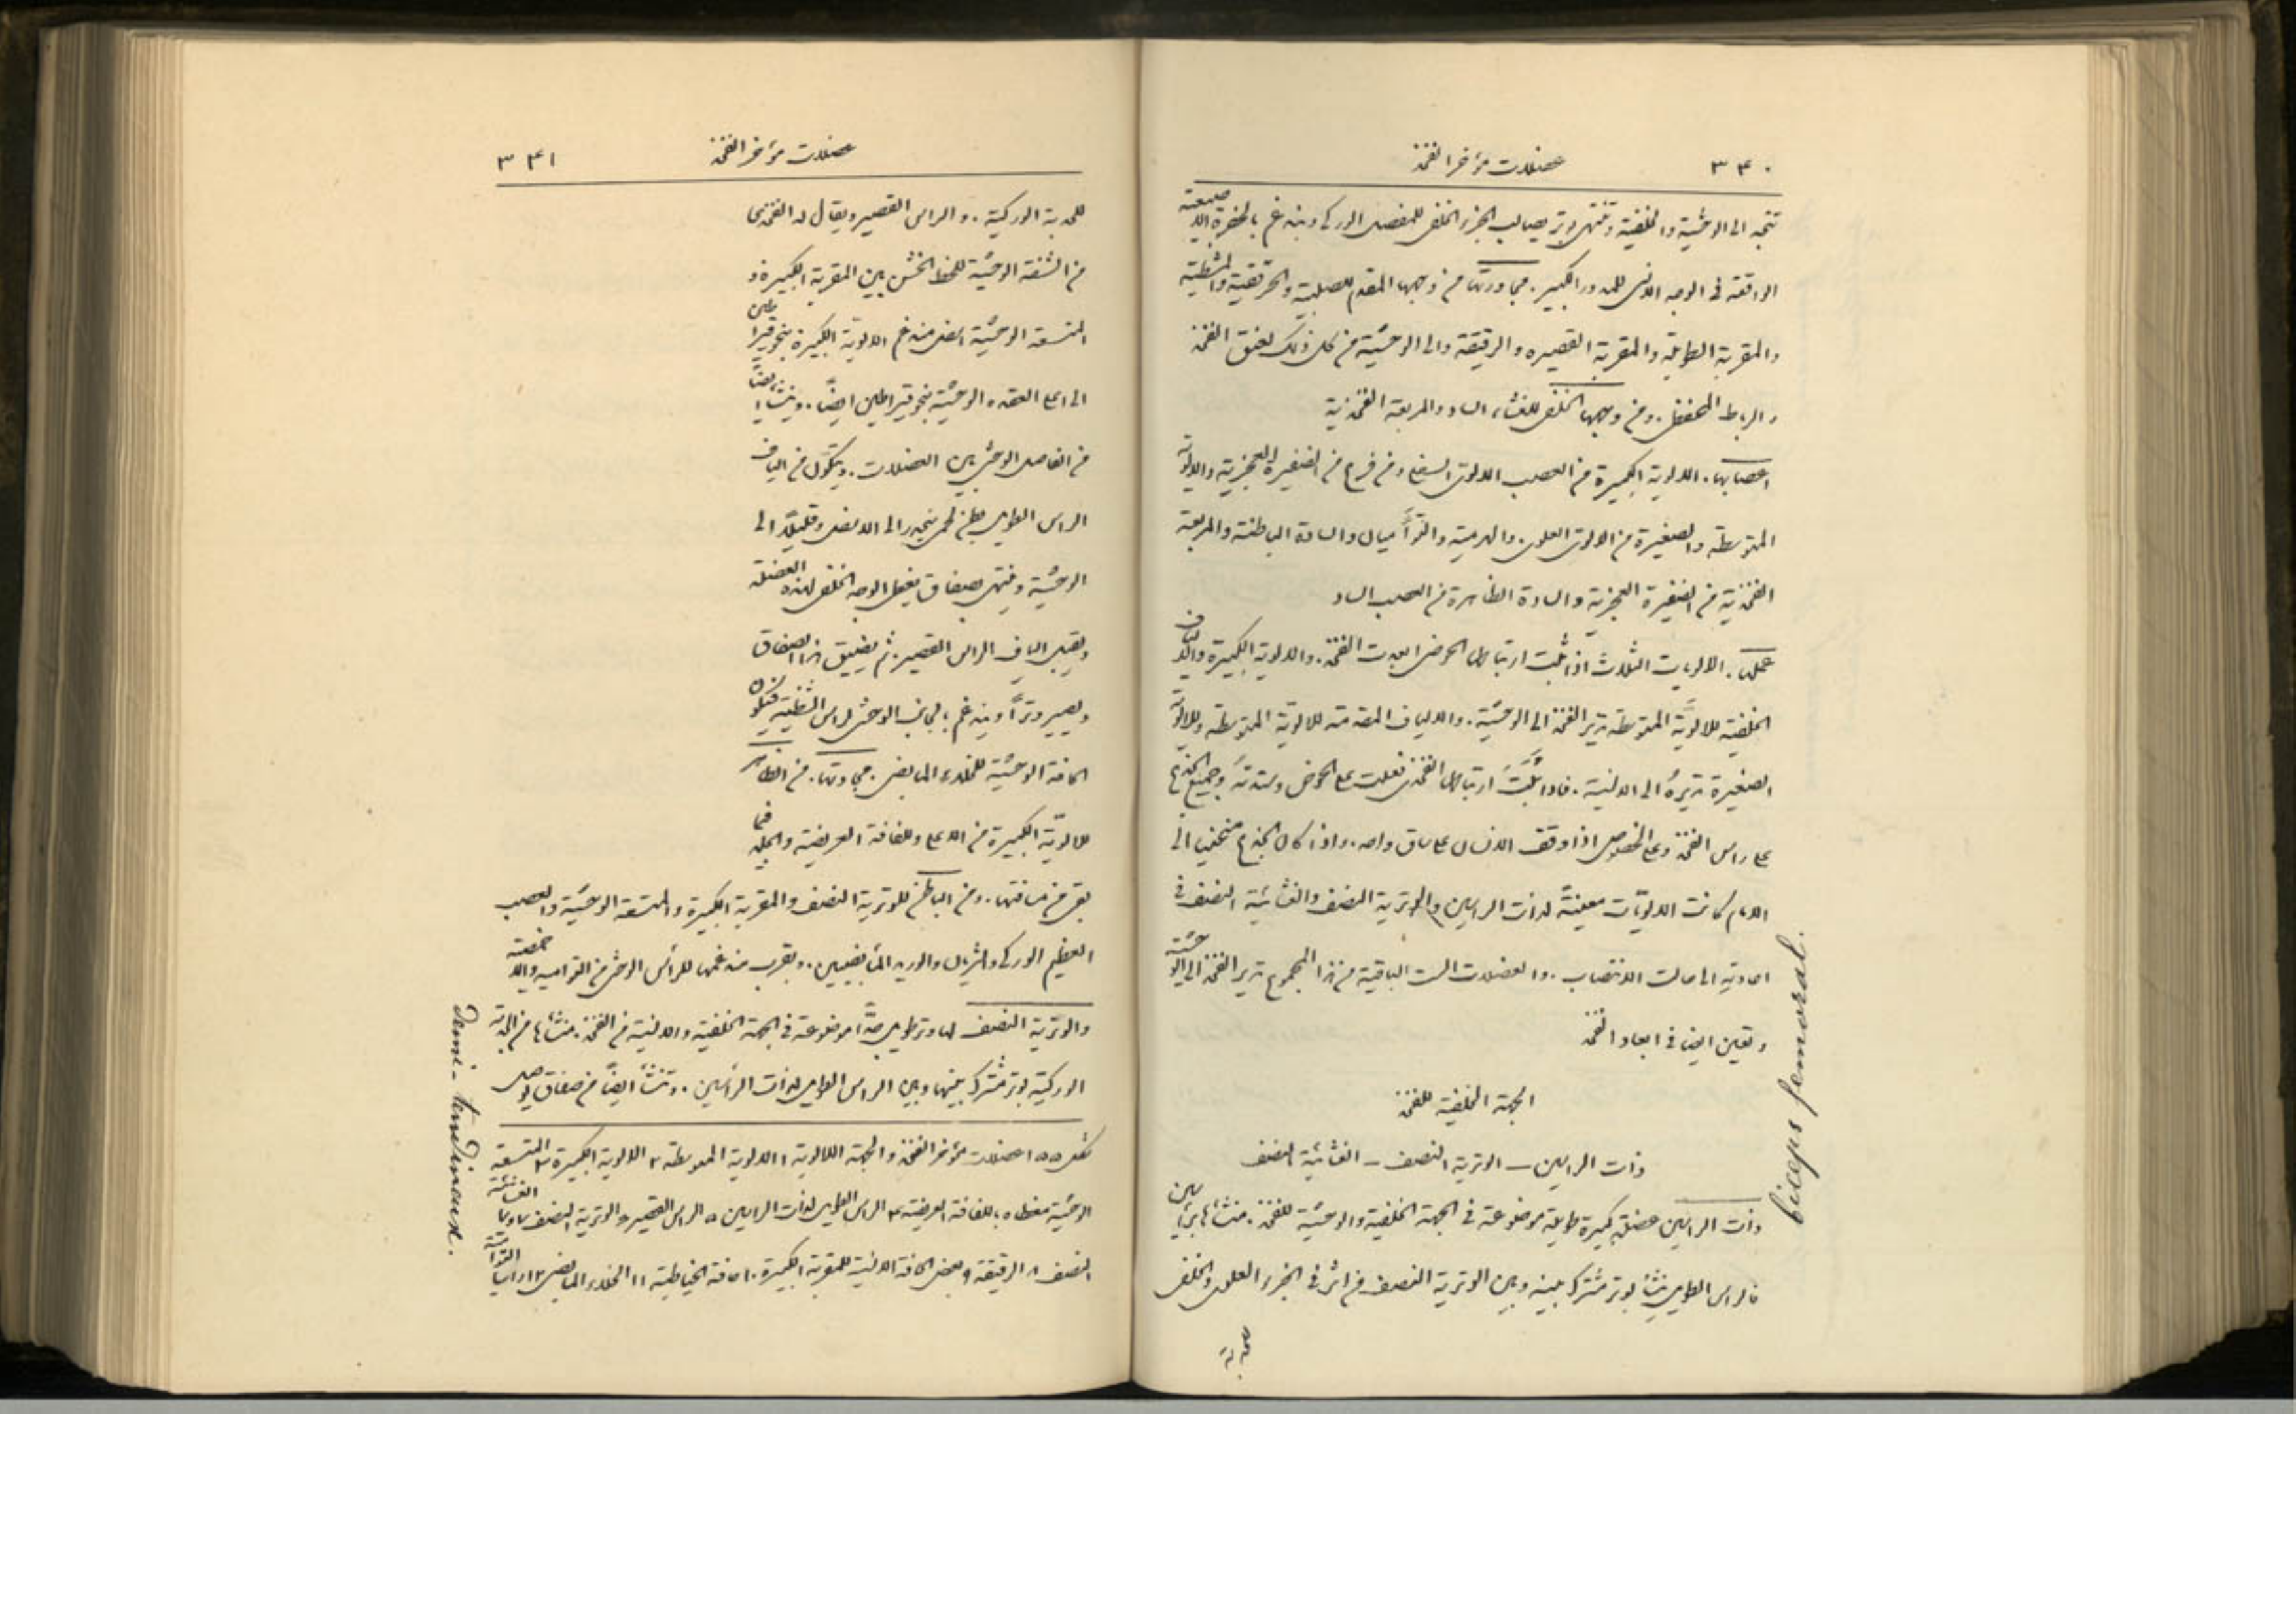 ٣٤٠ عضلات مؤخر الفخذ
تتجه الى الوحشية والخلفية وتنتهى بوتر يصالب الجزء الخلفى للمفصل الوركى ويندغم بالحفرة الاصبعية
الواقعة فى الوجه الانسى للمدور الكبير. مجاورتها من وجهها المقدم للصلبية والحرقفية والمشطية
والمقربة الطويلة والمقربة القصيره والرقيقة والى الوحشية من كل ذلك لعنق الفخذ
والرباط المحفظى. ومن وجهها الخلفى للغشاء الساد والمربعة الفخذية
اعصابها. الالوية الكبيرة من العصب الالوى السفلى ومن فرع من الضفيرة العجزية والالوية
المتوسطة والصغيرة من الالوى العلوى. والهرمية والتوأميان والسادة الباطنة والمربعة
الفخذية من الضفيرة العجزية والسادة الظاهرة من العصب الساد
عملها. الالويات الثلاث اذا ثبت ارتباطها الحوضى ابعدت الفخذ. والالوية الكبيرة والالياف
الخلفية للالويّة المتوسطة تدير الفخذ الى الوحشية. والالياف المقدمة للالوية المتوسطة وللالويّة
الصغيرة تديره الى الانسية. فاذا ثبت ارتباطها الفخذى فعلت على الحوض وسندته وجميع الجذع
على راس الفخذ وعلى الخصوص اذا وقف الانسان على ساق واحد. واذا كان الجذع منحنيا الى
الامام كانت الالويّات معينةً لذات الراسين والوترية النصف والغشائية النصف فى
اعادته الى حالة الانتصاب. والعضلات الست الباقية من هذا المجموع تدير الفخذ الى الوحشية
وتعين ايضا فى ابعاد الفخذ
الجهة الخلفية للفخذ
ذات الراسين – الوترية النصف – الغشائية النصف
ذات الراسين عضلة كبيرة طويلة موضوعة فى الجهة الخلفية والوحشية للفخذ. منشاها براسين
فالراس الطويل ينشأ بوتر مشترك بينه وبين الوترية النصف من اثر فى الجزء العلوى والخلفى
للحدبة
biceps femoral.
عضلات مؤخر الفخذ ٣٤١
للحدبة الوركية. والراس القصير ويقال له الفخذى
من الشفة الوحشية للخط الخشن بين المقربة الكبيرة و
المتسعة الوحشية اسفل مندغم الالوية الكبيرة بنحو قيراطين
الى اعلى العقدة الوحشية بنحو قيراطين ايضاً. وينشا ايضاً
من الفاصل الوحشى بين العضلات. ويتكون من الياف
الراس الطويل بطن لحمى ينحدر الى الاسفل وقليلاً الى
الوحشية وينتهى بصفاق يغطى الوجه الخلفى لهذه العضلة
ويقبل الياف الراس القصير. ثم يضيق هذا الصفاق
ويصير وتراً ويندغم بالجانب الوحشى لراس الشظية فتتكون
الحافة الوحشية للخلاء المابضى. مجاورتها. من الظاهر
للالويّة الكبيرة من الاعلى وللفافة العريضة والجلد فيما
بقى من مسافتها. ومن الباطن للوترية النصف والمقربة الكبيرة والمتسعة الوحشية والعصب
العظيم الوركى والشريان والوريد المأبضيين. وبقرب مندغمها للرأس الوحشى من التوامية والاخمصية
والوترية النصف لها وتر طويل جدًّا موضوعة فى الجهة الخلفية والانسية من الفخذ. منشاها من الحدبة
الوركية بوتر مشترك بينها وبين الراس الطويل لذات الرأسين. وتنشأ ايضاً من صفاق يوصل
شكل ١٥٥ عضلات مؤخر الفخذ والجهة الالوية ١ الالوية المتوسطة ٢ الالوية الكبيرة ٣ المتسعة
الوحشية مغطاه باللفافة العريضة ٤ الراس الطويل لذات الراسين ٥ الراس القصير ٦ الوترية النصف ٧ و٧ الغشائية
النصف ٨ الرقيقة ٩ بعض الحافة الانسية للمقربة الكبيرة ١٠ حافة الخياطية ١١ الخلاء المابضى ١٢ راسا التوأمية
Demi-tendineux.